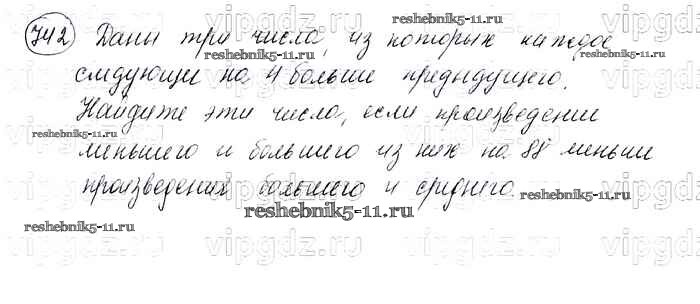 742 Даны три числа, из которых каждое
следующи на 4 больше предыдущего.
Найдите эти числа, если произведении
меньшего и большего из них на 88 меньши
произведения большего и среднего.
reshebnik5-11.ru
reshebnik5-11.ru
reshebnik5-11.ru
reshebnik5-11.ru
reshebnik5-11.ru
reshebnik5-11.ru
reshebnik5-11.ru
vipgdz.ru
vipgdz.ru
vipgdz.ru
vipgdz.ru